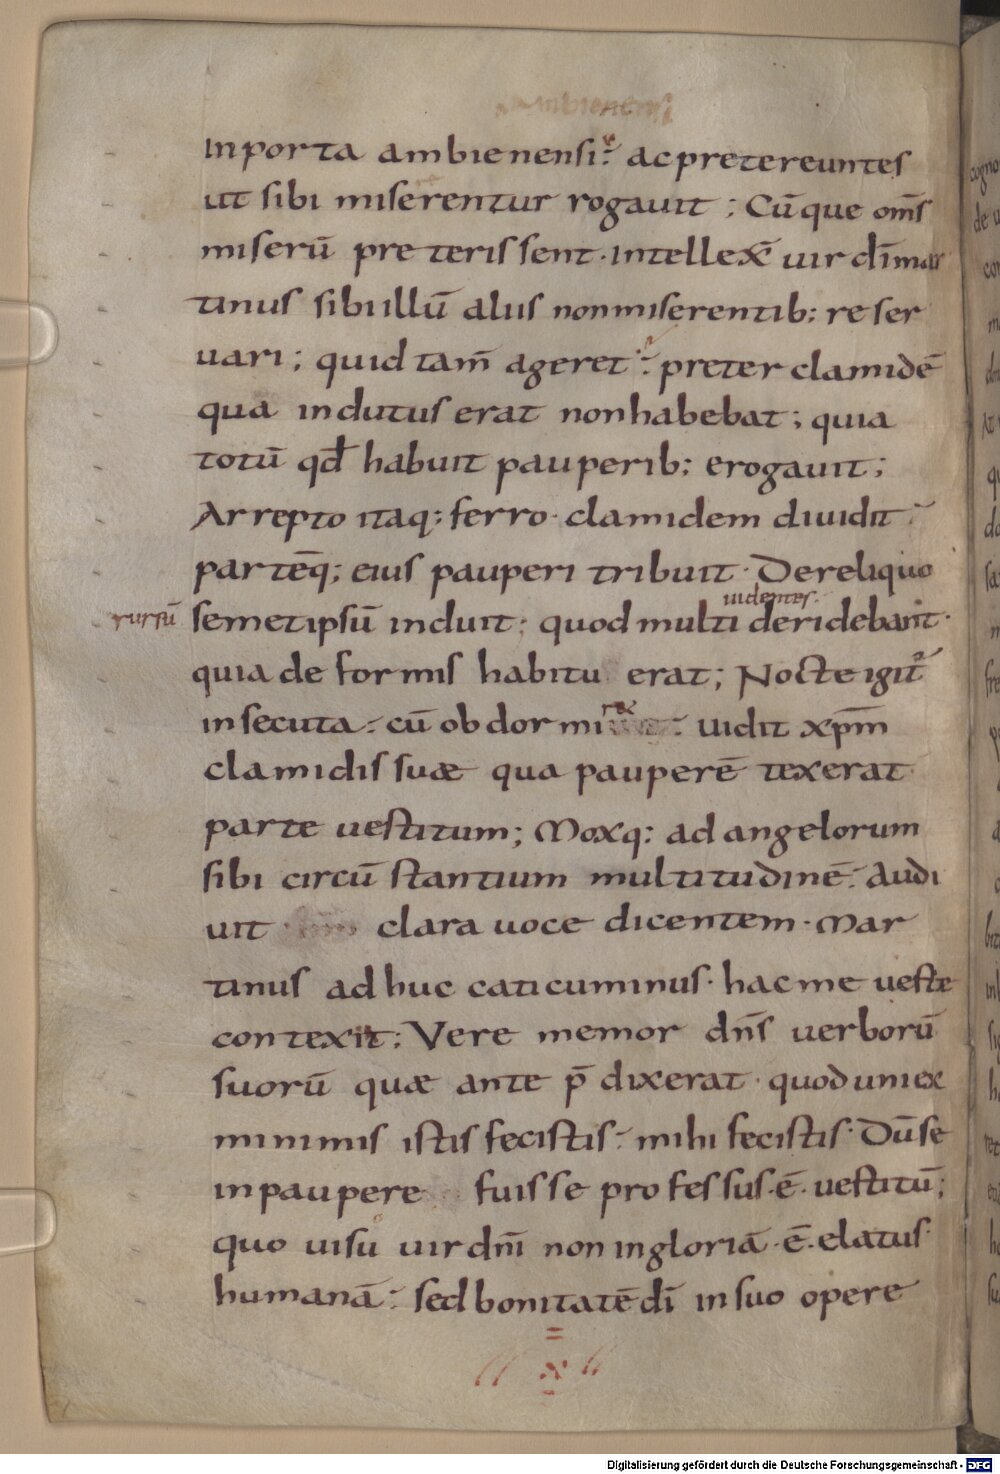 ambienensi
In porta ambienensi. ac pretereuntes
ut sibi miserentur rogauit; Cū que om̄s
miserū preterissent. intellex̄ uir dī mar
tinus sibi illū aliis non miserentib; reser
uari; quid tam̄ ageret. preter clamidē
qua indutus erat non habebat; quia
totū qđ habuit pauperib; erogauit;
Arrepto itaq; ferro. clamidem diuidit
partēq; eius pauperi tribuit. De reliquo
rursū semetipsū induit; quod multi deridebant.
uidentes.
quia deformis habitu erat; Nocte igit̄
insecuta. cū obdormi uidit xp̄m
clamidis suæ qua pauperē texerat
parte uestitum; Moxq; ad angelorum
sibi circū stantium multitudinē. Audi
uit clara uoce dicentem. Mar
tinus adhuc caticuminus. hac me ueste
contexit; Vere memor dn̄s uerborū
suorū quæ ante p̄dixerat. quod uni ex
minimis istis fecistis. mihi fecistis. Dū se
in paupere fuisse professus. ē. uestitū;
quo uisu uir dn̄i non in gloriā. ē. elatus
humanā. sed bonitatē dī in suo opere
Digitalisierung gefördert durch die Deutsche Forschungsgemeinschaft - DFG